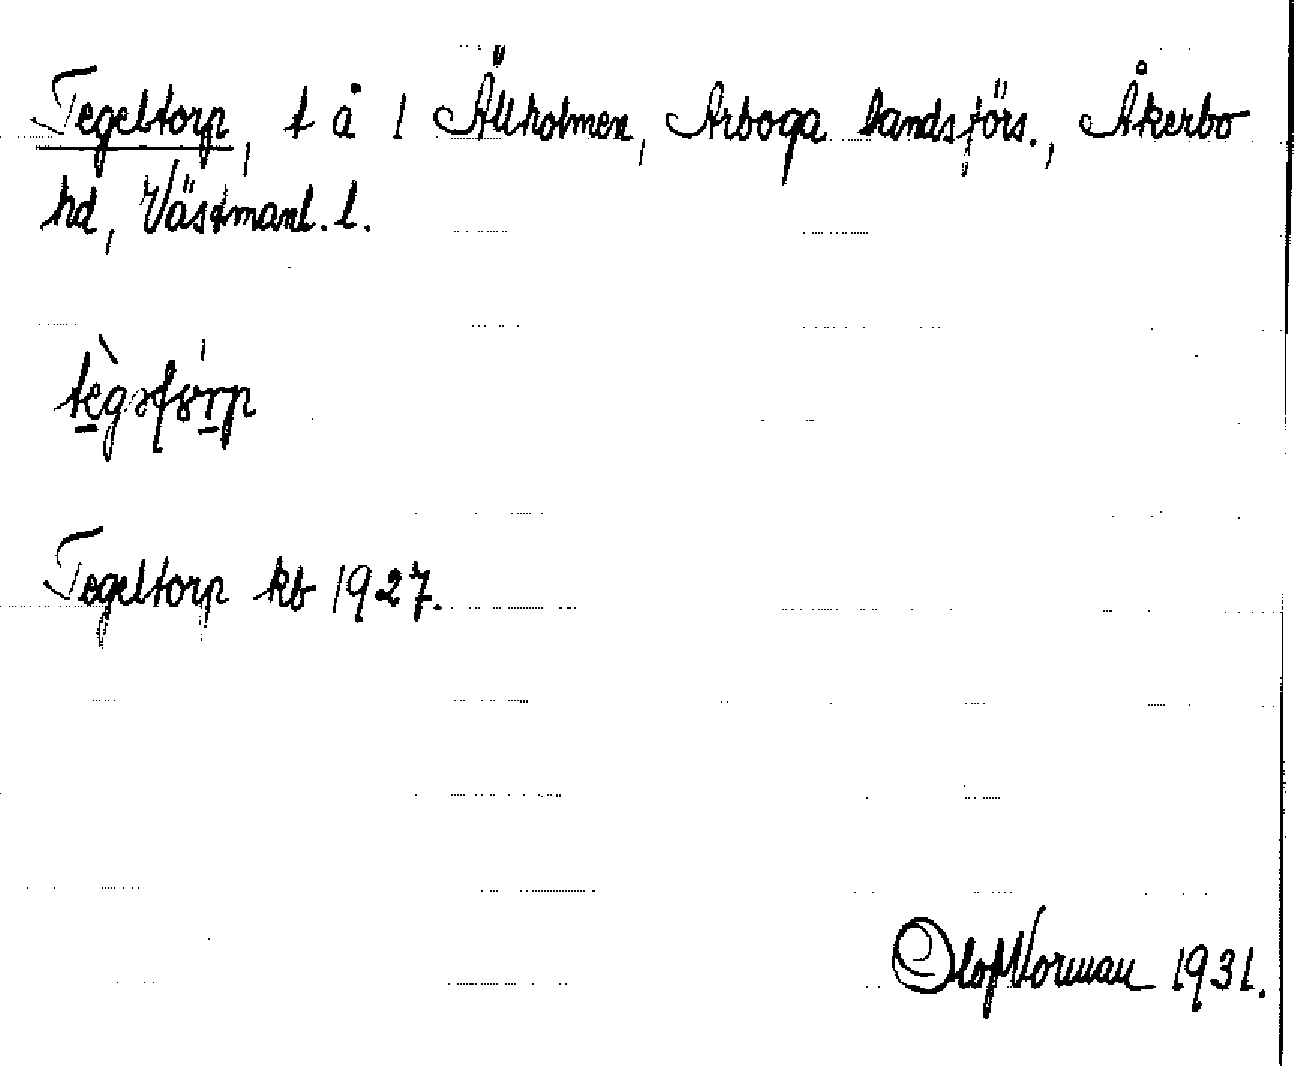 Tegeltorp, t å 1 Ällholmen, Arboga landsförs., Åkerbo
hd, Västmanl. l.
Tegeltorp kb 1927.
Olof Norman 1931.